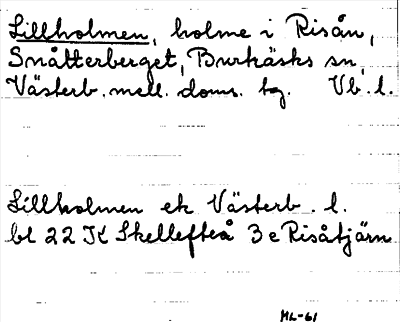 Lillholmen, holme i Risån,
Snåtterberget, Burkäsks sn,
Västerb. mell. doms. tg. Vb. l.
Lillholmen ek Västerb. l.
bl 22 K Skellefteå 3 e Risåtjärn
ML-61